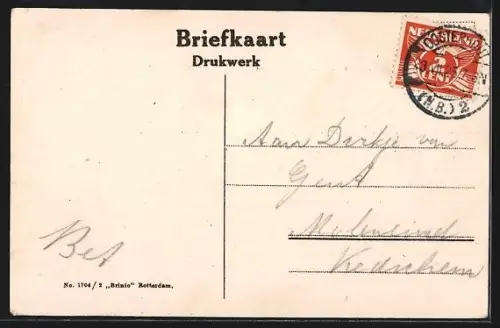 Briefkaart
Drukwerk
(N.B.) 2
Aan Dirkje van
Gent
Moleneind
Kedichem
Bet
No. 1704/2 „Brinio” Rotterdam.